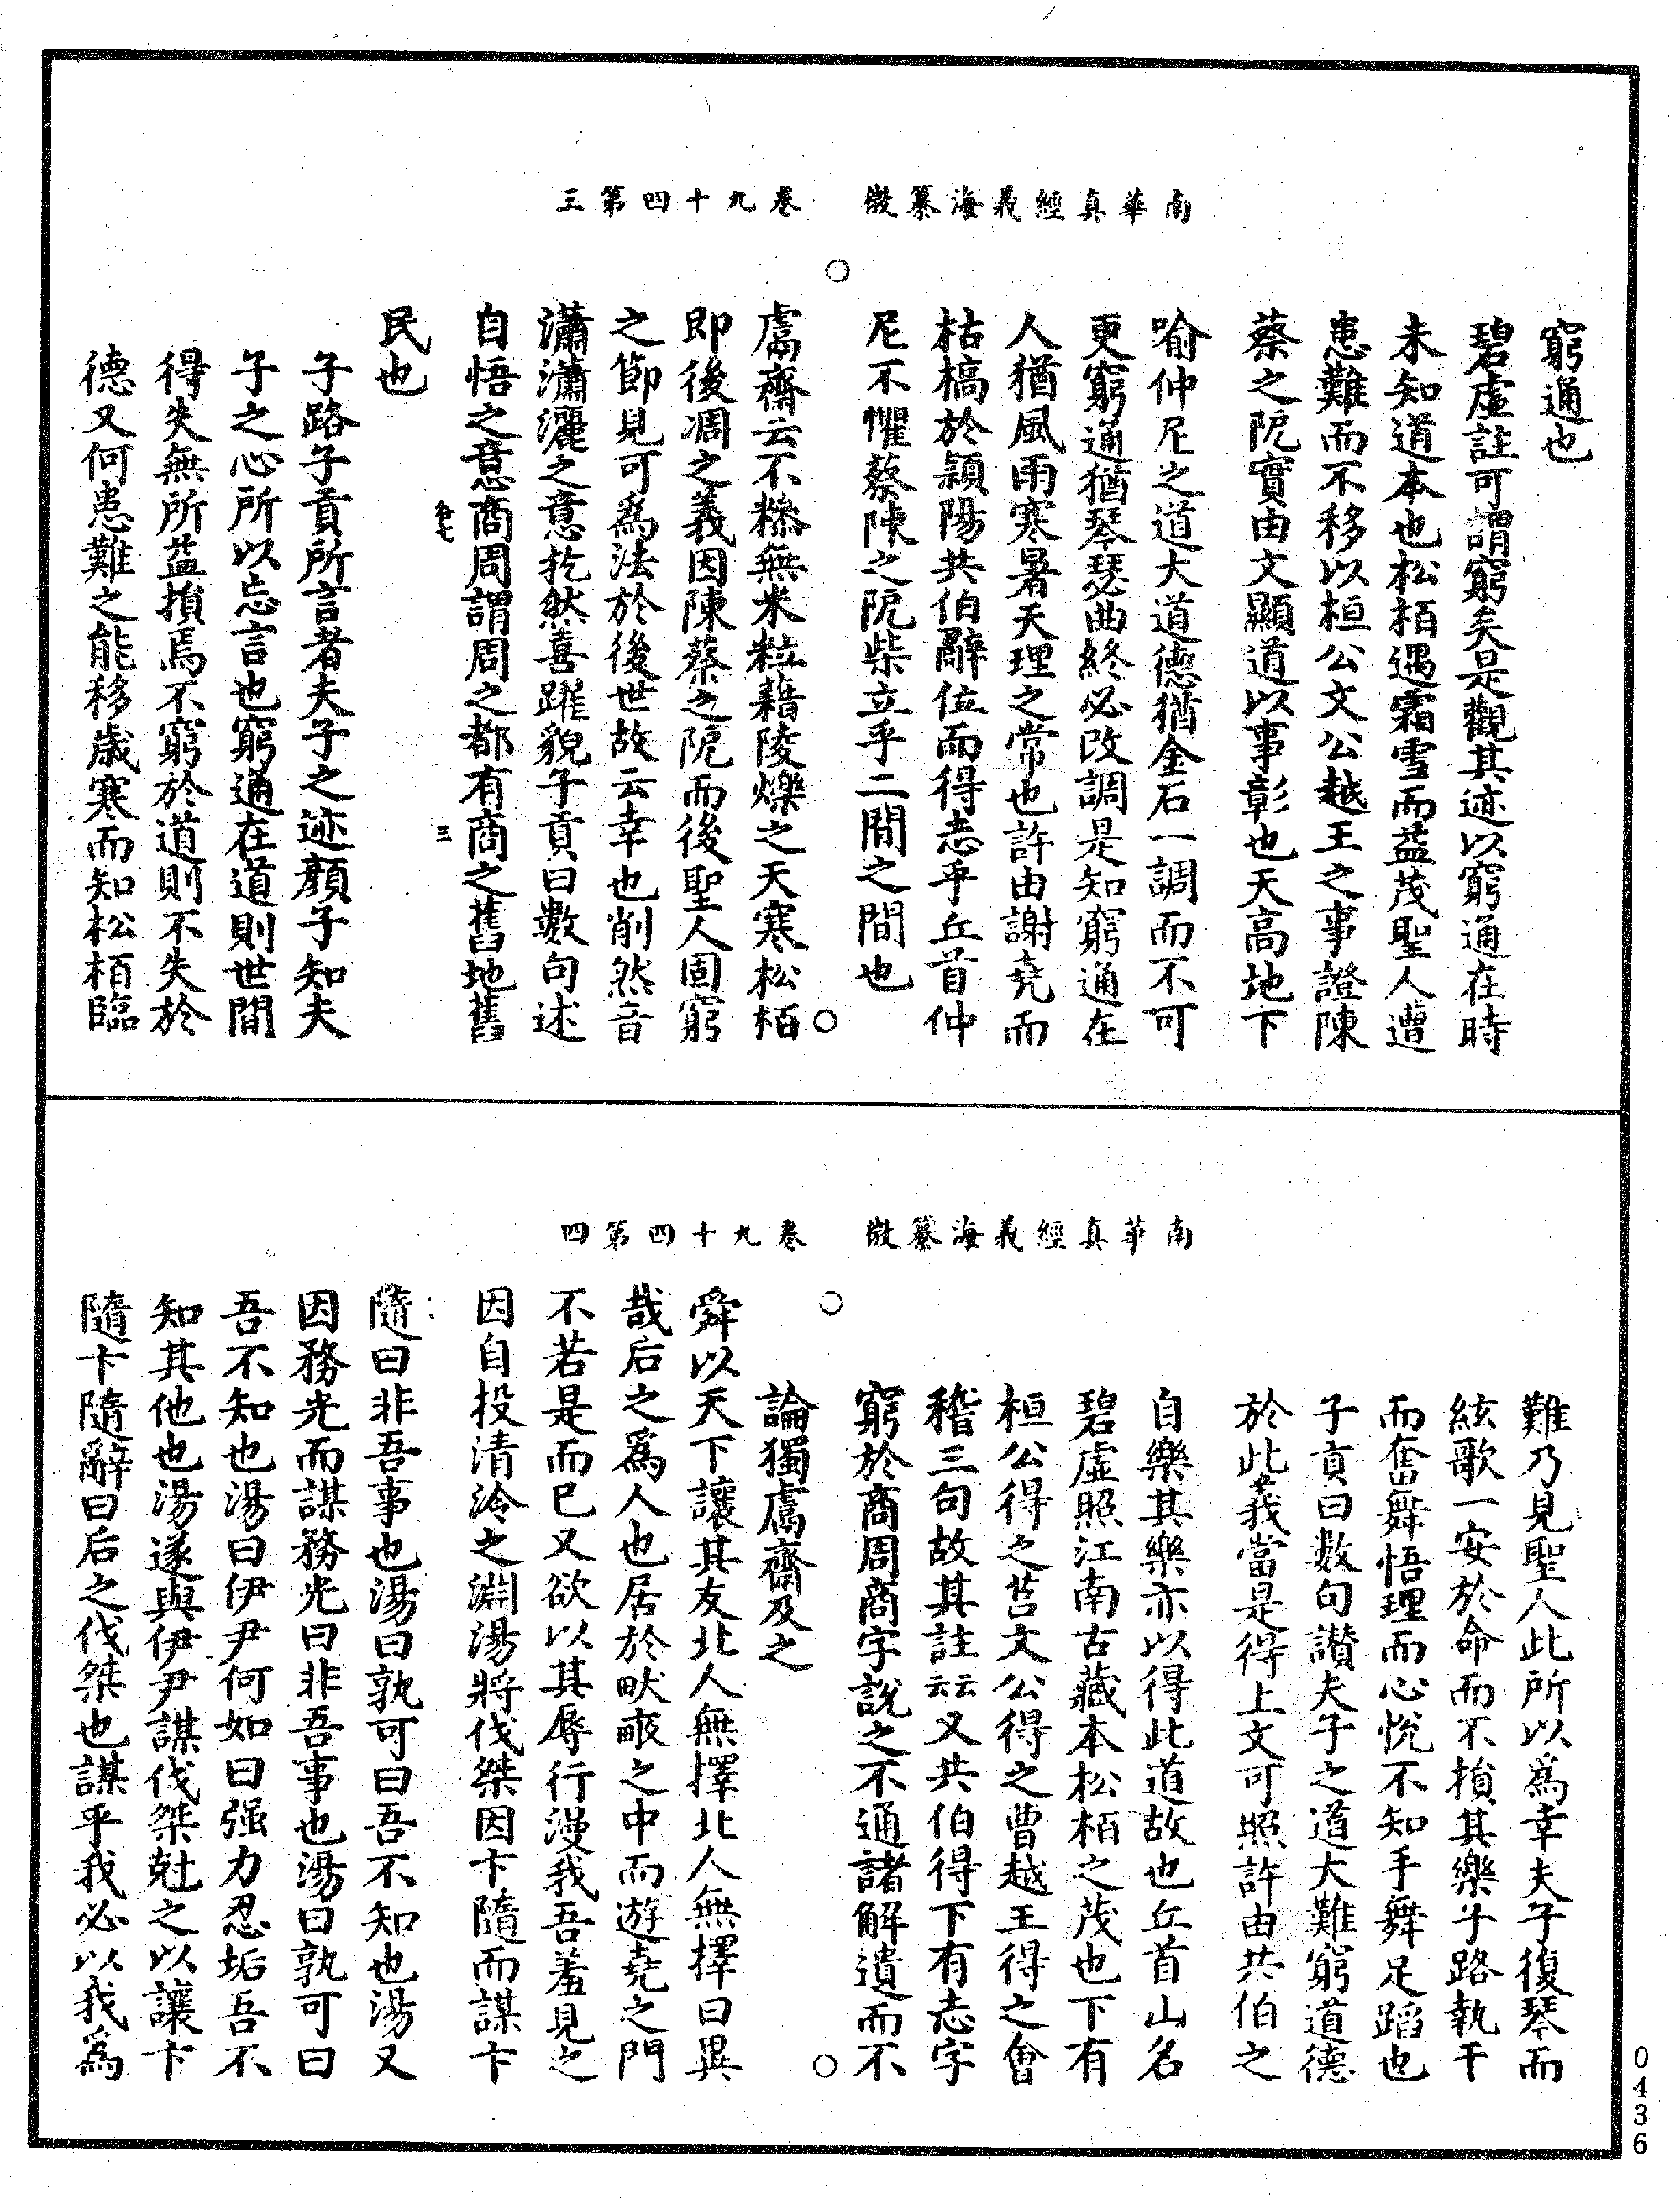 南華真經義海纂微　卷九十四第三
窮通也
碧虛註可謂窮矣是觀其迹以窮通在時
未知道本也松栢遇霜雪而益茂聖人遭
患難而不移以桓公文公越王之事證陳
蔡之阨實由文顯道以事彰也天高地下
喻仲尼之道大道德猶金石一調而不可
更窮通猶琴瑟曲終必改調是知窮通在
人猶風雨寒暑天理之常也許由謝堯而
枯槁於潁陽共伯辭位而得志乎丘首仲
尼不懼蔡陳之阨柴立乎二間之間也
鬳齋云不糝無米粒藉陵爍之天寒松栢
即後凋之義因陳蔡之阨而後聖人固窮
之節見可為法於後世故云幸也削然音
瀟瀟灑之意扢然喜躍貌子貢曰數句述
自悟之意商周謂周之都有商之舊地舊
三
民也
子路子貢所言者夫子之迹顏子知夫
子之心所以忘言也窮通在道則世間
得失無所益損焉不窮於道則不失於
德又何患難之能移歲寒而知松栢臨
南華真經義海纂微　卷九十四第四
難乃見聖人此所以為幸夫子復琴而
絃歌一安於命而不損其樂子路執干
而奮舞悟理而心悅不知手舞足蹈也
子貢曰數句讚夫子之道大難窮道德
於此義當是得上文可照許由共伯之
自樂其樂亦以得此道故也丘首山名
碧虛照江南古藏本松栢之茂也下有
桓公得之莒文公得之曹越王得之會
稽三句故其註云云又共伯得下有志字
窮於商周商字說之不通諸解遺而不
論獨鬳齋及之
舜以天下讓其友北人無擇北人無擇曰異
哉后之為人也居於畎畝之中而遊堯之門
不若是而已又欲以其辱行漫我吾羞見之
因自投清泠之淵湯將伐桀因卞隨而謀卞
隨曰非吾事也湯曰孰可曰吾不知也湯又
因務光而謀務光曰非吾事也湯曰孰可曰
吾不知也湯曰伊尹何如曰强力忍垢吾不
知其他也湯遂與伊尹謀伐桀尅之以讓卞
隨卞隨辭曰后之伐桀也謀乎我必以我為
0436